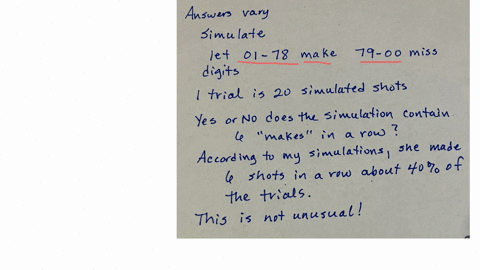 Answers vary
Simulate
let 01-78 make 79-00 miss
digits
1 trial is 20 simulated shots
Yes or No does the simulation contain
6 "makes" in a row?
According to my simulations, she made
6 shots in a row about 40% of
the trials.
This is not unusual!